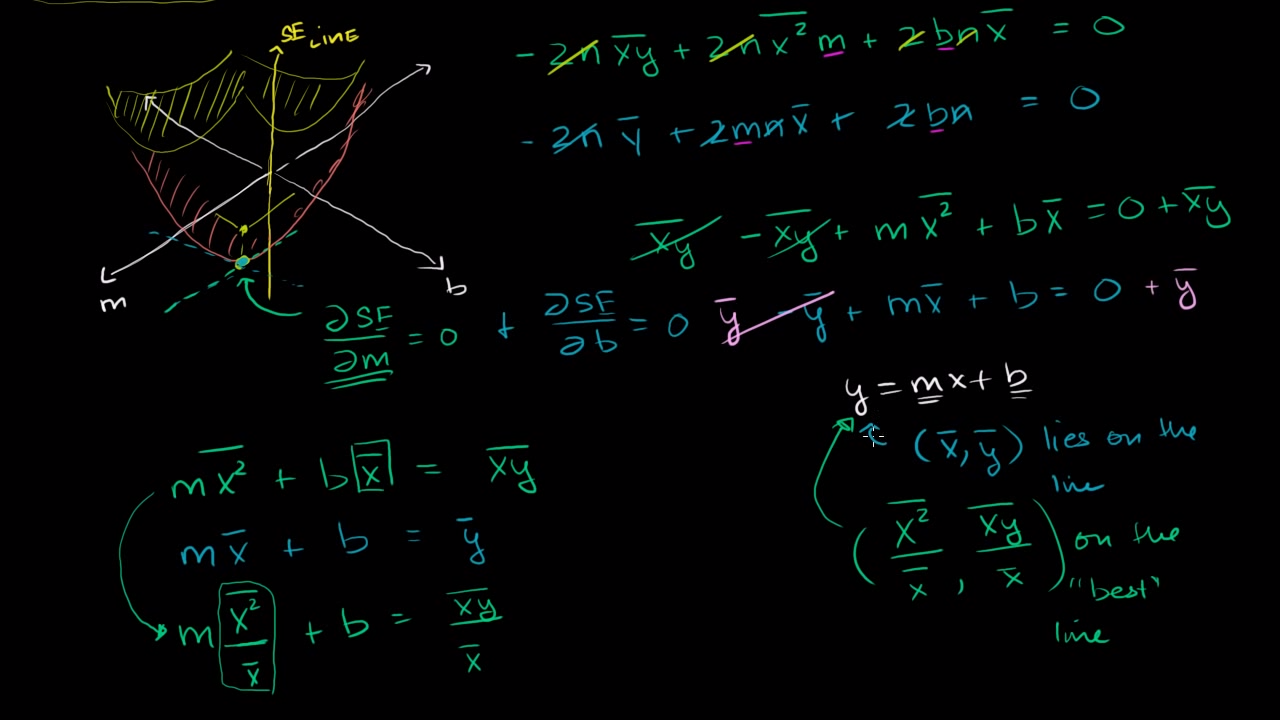 SE LINE
m
b
-2n x̅y̅ + 2n x̅²̅ m + 2bn x̅ = 0
-2n y̅ + 2mn x̅ + 2bn = 0
x̅y̅ - x̅y̅ + m x̅²̅ + b x̅ = 0 + x̅y̅
∂SE/∂m = 0 + ∂SE/∂b = 0
y̅ - y̅ + m x̅ + b = 0 + y̅
y = mx + b
(x̅, y̅) lies on the
line
(x̅²̅/x̅, x̅y̅/x̅) on the
"best"
line
m x̅²̅ + b x̅ = x̅y̅
m x̅ + b = y̅
m x̅²̅/x̅ + b = x̅y̅/x̅